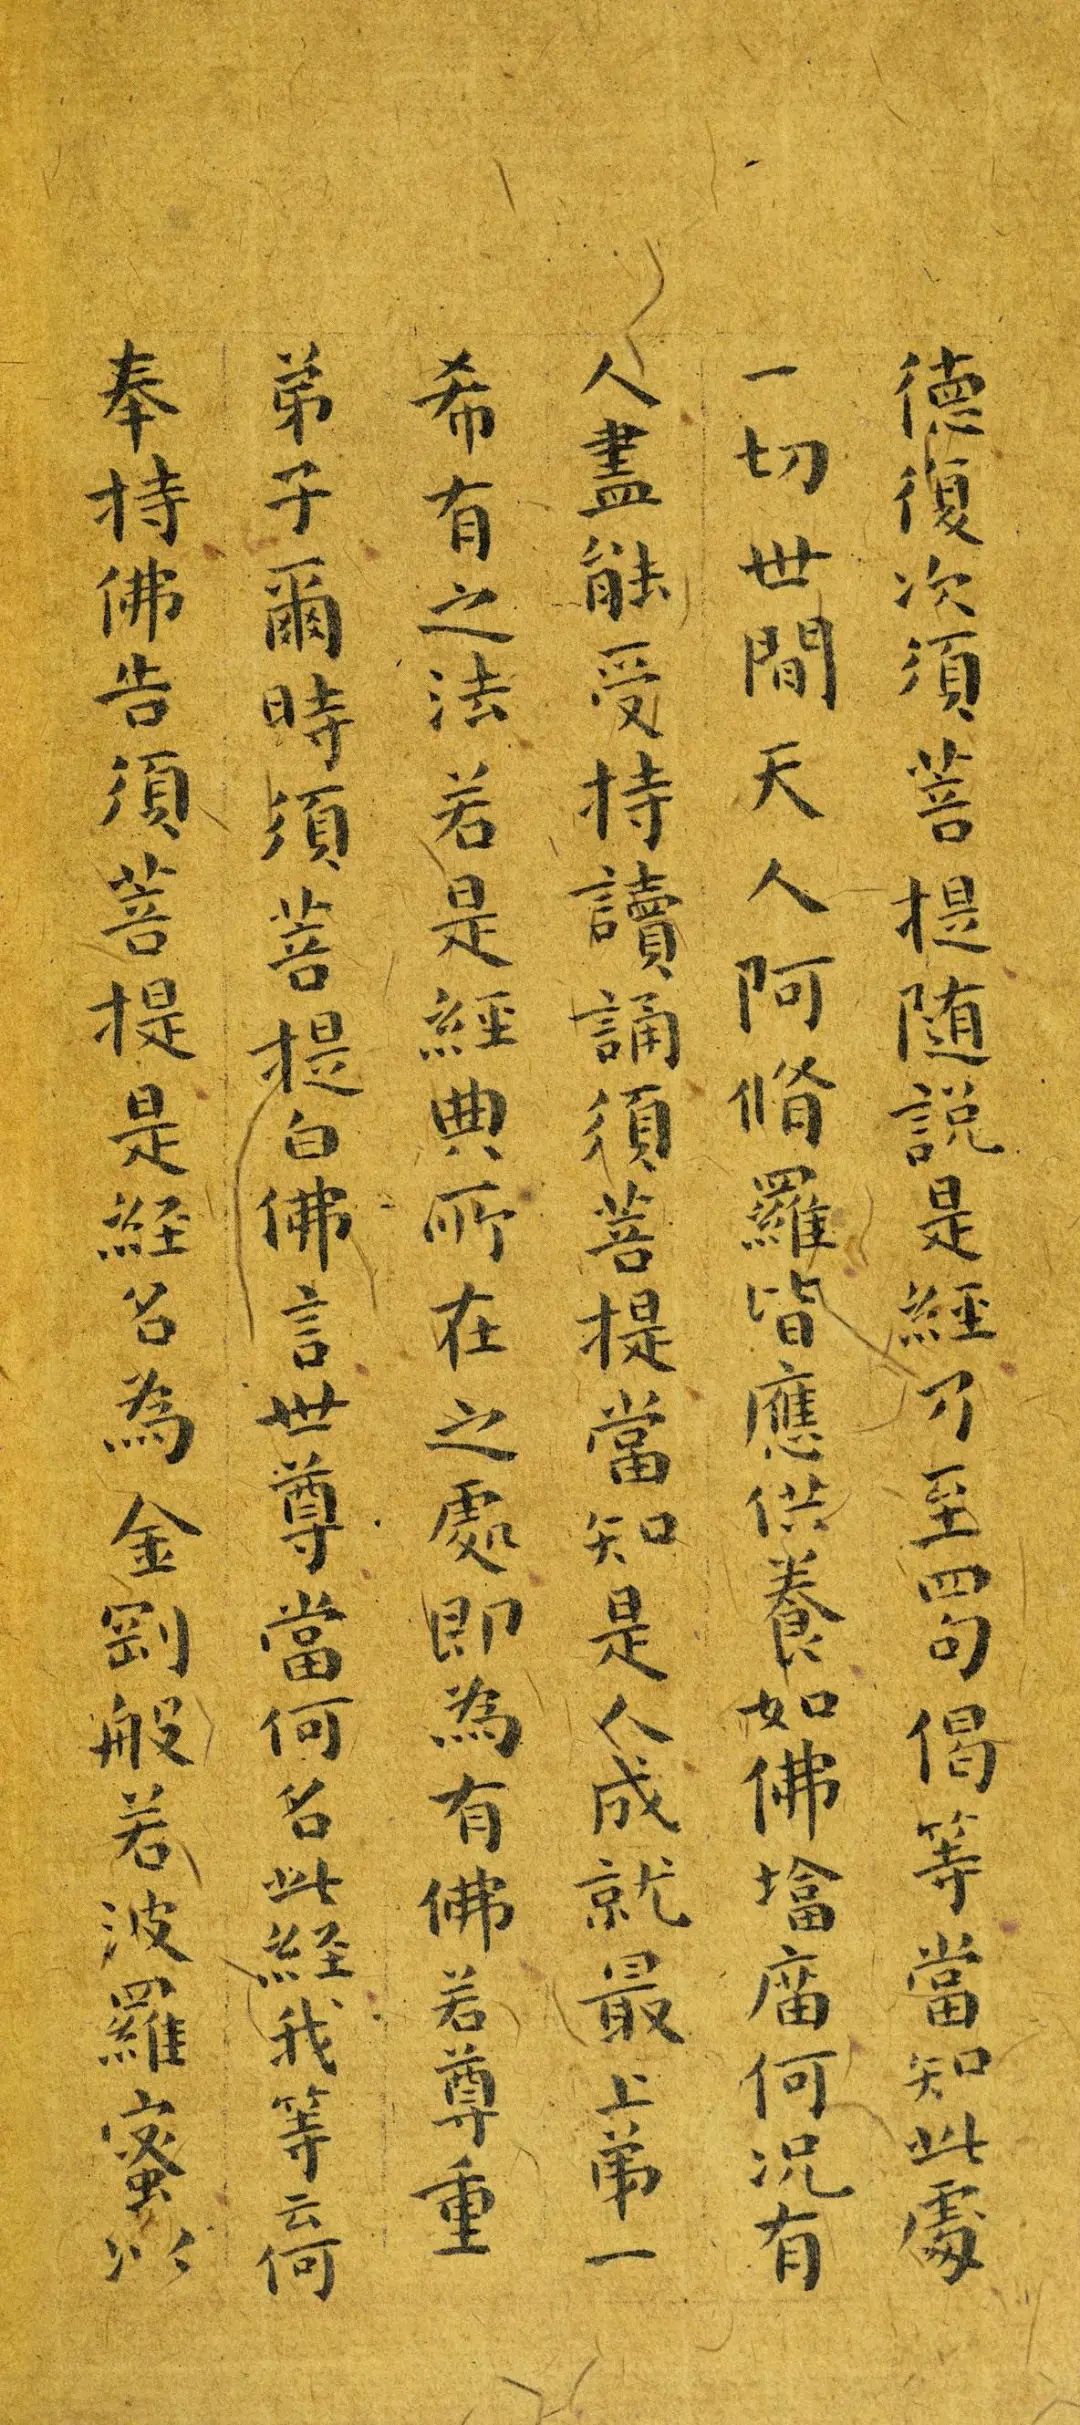 德復次須菩提随說是經乃至四句偈等當知此處
一切世間天人阿脩羅皆應供養如佛塔廟何況有
人盡能受持讀誦須菩提當知是人成就最上第一
希有之法若是經典所在之處即為有佛若尊重
弟子爾時須菩提白佛言世尊當何名此經我等云何
奉持佛告須菩提是經名為金剛般若波羅蜜以